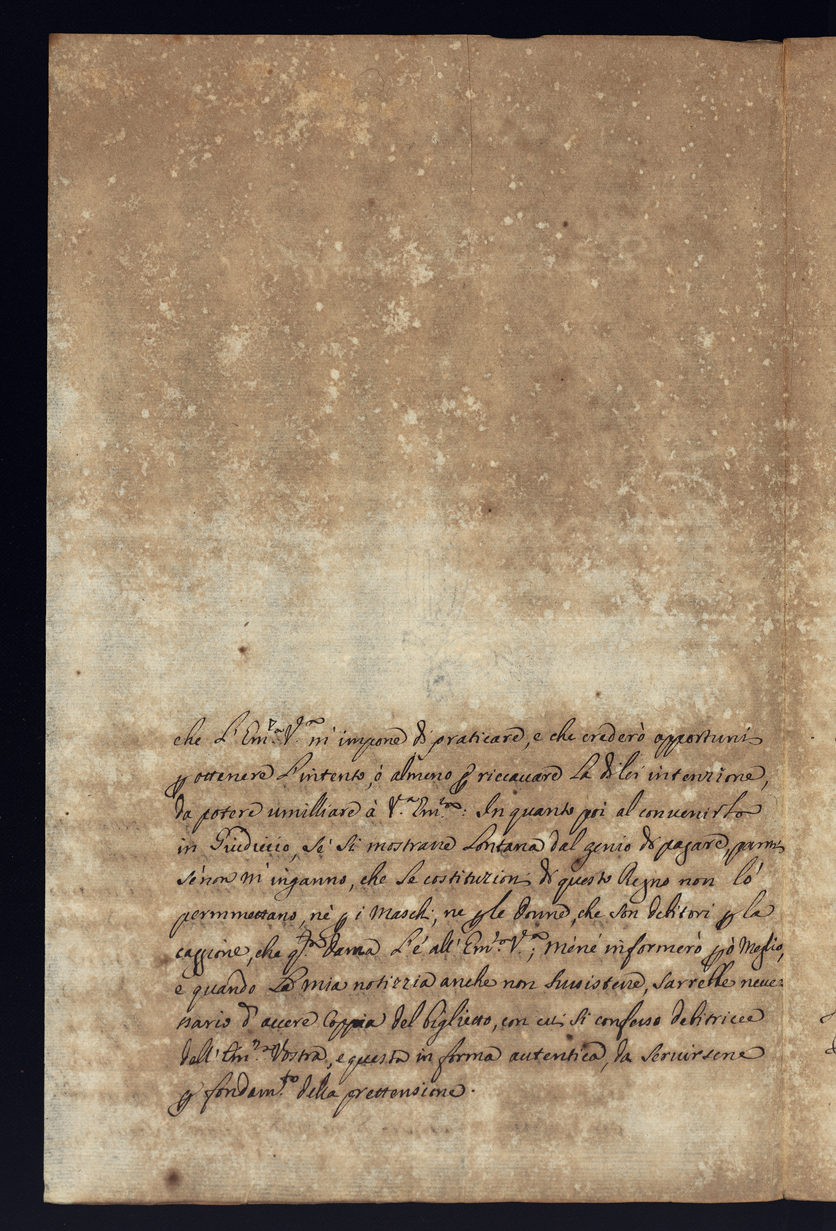 che L'Em.ª V.ª m'impone di praticare, e che crederò opportuni
p ottenere L'intento, ò almeno p riccavare La di lei intenzione,
da potere umilliare à V.ª Em.ª: In quanto poi al convenirLa
in Giudiccio, se si mostrasse Lontana dal genio di pagare, parmi
se non m'inganno, che Le costituzioni di questo Regno non lò
permmettano, nè p i Maschi, ne p le donne, che son debitori p la
caggione, che q.sta Dama L'é all' Em.ª V.ª; mene informerò pò meglio,
e quando La mia notizzia anche non sussistesse, sarrebbe neces
sario d'avere Coppia del biglietto, con cui si confesso debitricce
dell' Em.ª Vostra, e questa in forma autentica, da servirsene
p fondam.to della prettensione.